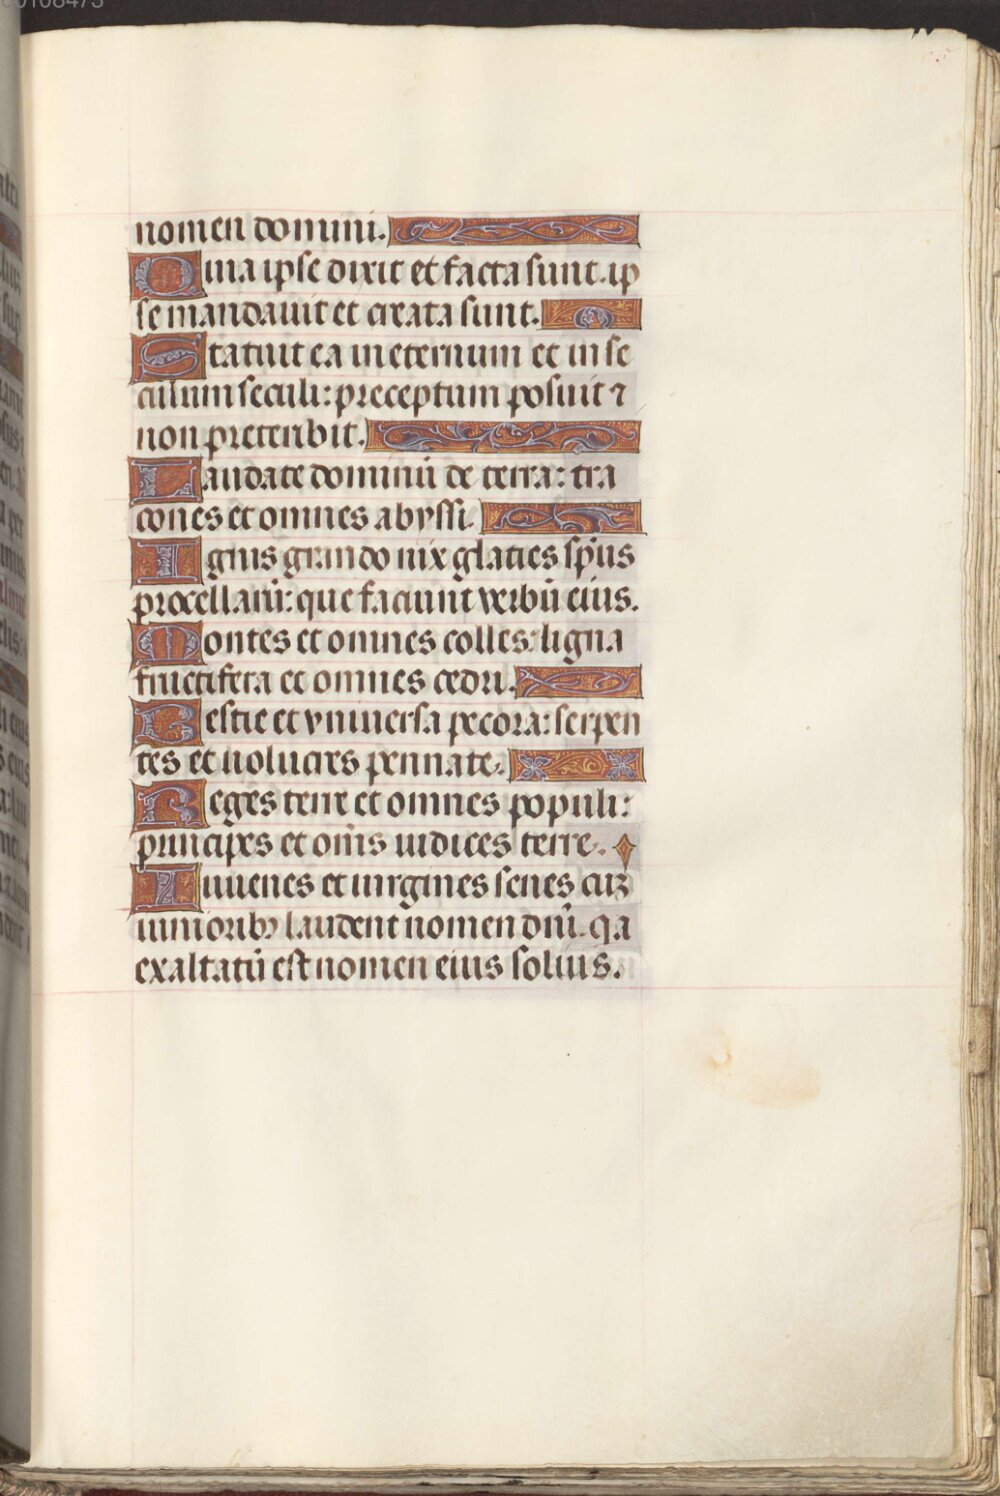 nomen domini.
Quia ipse dixit et facta sunt. ip
se mandauit et creata sunt.
Statuit ea in eternum et in se
culum seculi: preceptum posuit ⁊
non preteribit.
Laudate dominũ de terra: tra
cones et omnes abyssi.
Ignis grando nix glacies sp̃us
procellarũ: que faciunt verbũ eius.
Montes et omnes colles: ligna
fructifera et omnes cedri.
Bestie et vniuersa pecora: serpen
tes et uolucres pennate.
Reges terre et omnes populi:
principes et om̃s iudices terre.
Iuuenes et uirgines senes cuʒ
iuniorib⁊ laudent nomen dnĩ. q̃a
exaltatũ est nomen eius solius.